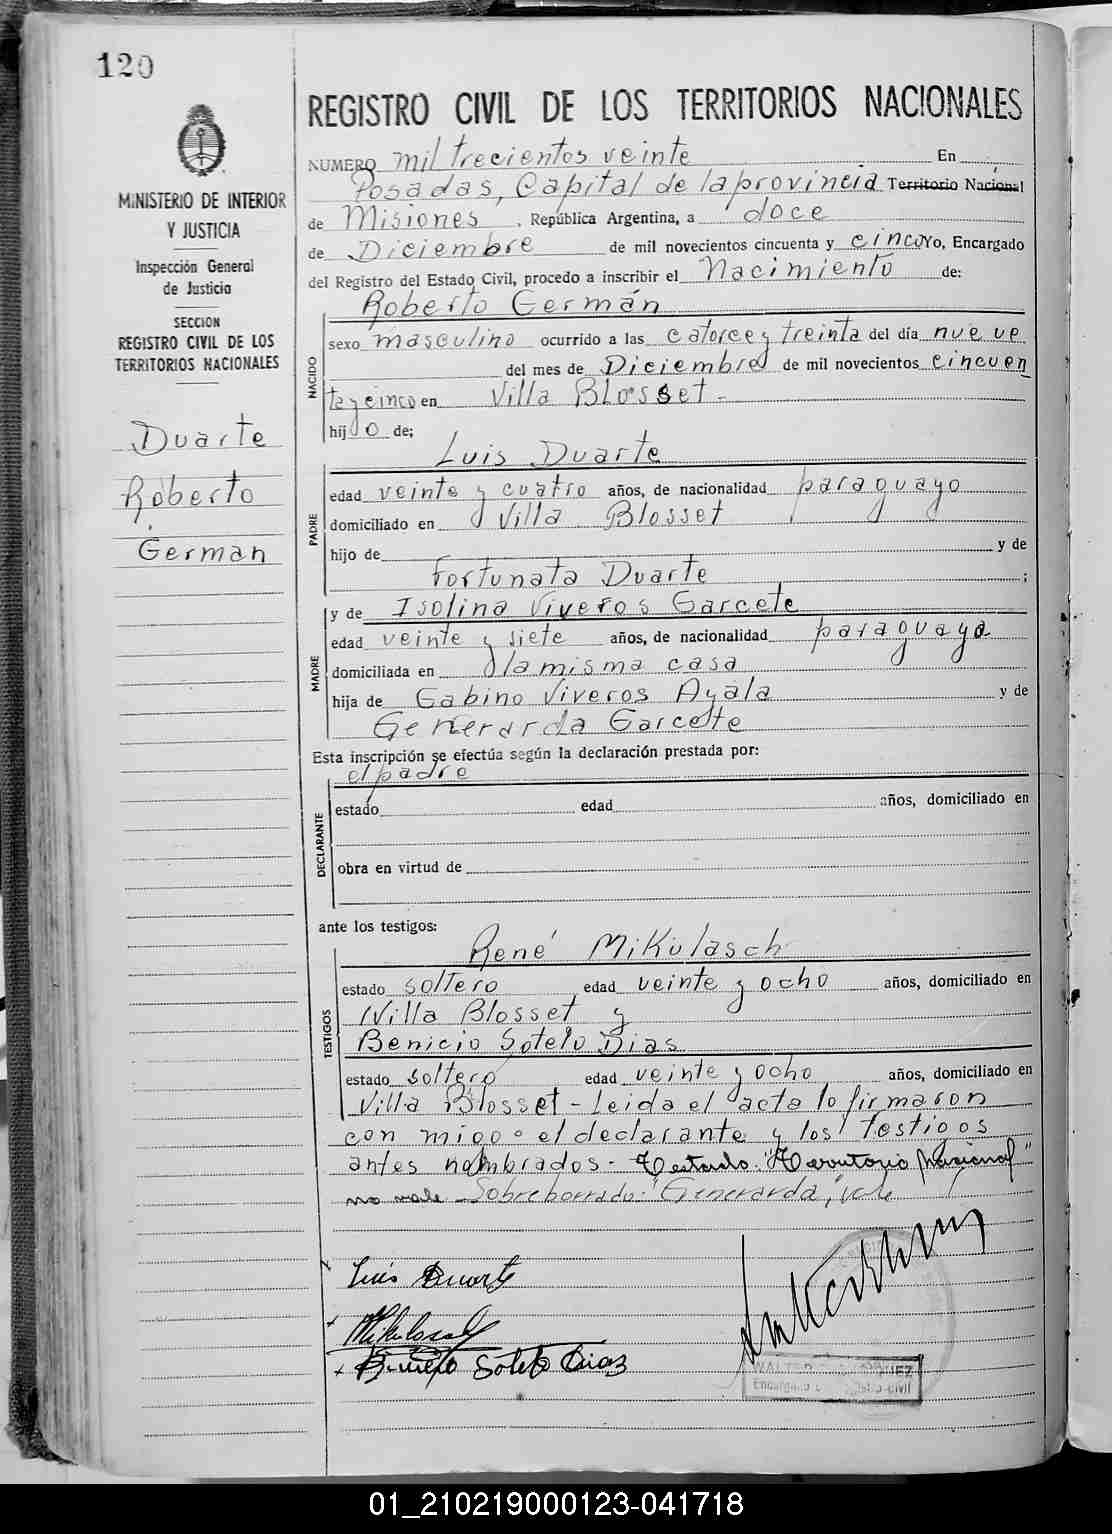 120
MINISTERIO DE INTERIOR
Y JUSTICIA
Inspección General
de Justicia
SECCION
REGISTRO CIVIL DE LOS
TERRITORIOS NACIONALES
Duarte
Roberto
German
REGISTRO CIVIL DE LOS TERRITORIOS NACIONALES
NUMERO mil trecientos veinte En
Posadas, Capital de la provincia Territorio Nacional
de Misiones, República Argentina, a doce
de Diciembre de mil novecientos cincuenta y cinco Yo, Encargado
del Registro del Estado Civil, procedo a inscribir el Nacimiento de:
NACIDO
Roberto Germán
sexo masculino ocurrido a las catorce y treinta del día nueve
del mes de Diciembre de mil novecientos cincuen
ta y cinco en Villa Blosset -
hijo de;
PADRE
Luis Duarte
edad veinte y cuatro años, de nacionalidad paraguayo
domiciliado en Villa Blosset
hijo de y de
Fortunata Duarte ;
MADRE
y de Isolina Viveros Garcete
edad veinte y siete años, de nacionalidad paraguaya
domiciliada en la misma casa
hija de Gabino Viveros Ayala y de
Generarda Garcete
Esta inscripción se efectúa según la declaración prestada por:
el padre
DECLARANTE
estado edad años, domiciliado en
obra en virtud de
ante los testigos:
TESTIGOS
René Mikulasch
estado soltero edad veinte y ocho años, domiciliado en
Villa Blosset y
Benicio Sotelo Dias
estado soltero edad veinte y ocho años, domiciliado en
Villa Blosset - Leida el acta lo firmaron
con migo el declarante y los testigos
antes nombrados - Testado: "Territorio Nacional"
no vale - Sobreborrado: "Generarda", vale
Luis Duarte
Mikulasch
Sotelo Diaz
WALTER
Encargado
01_210219000123-041718